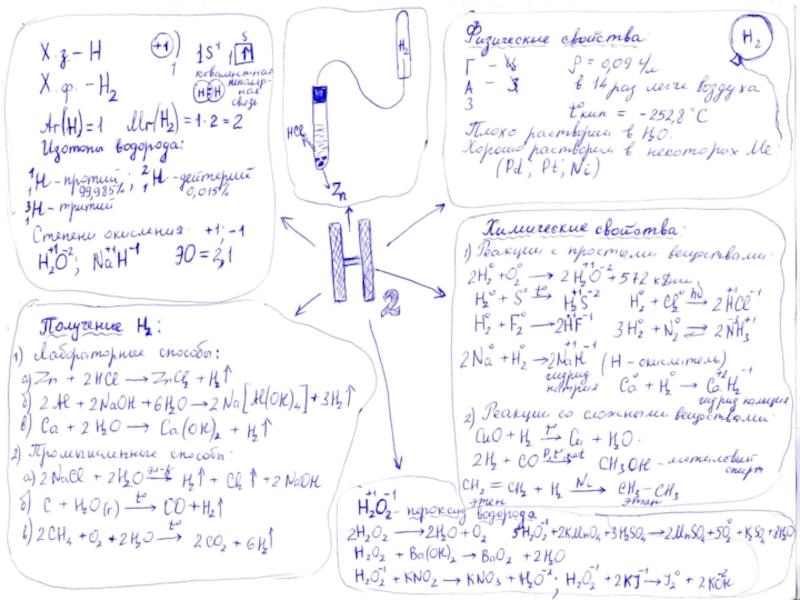 Х.з. – H +1) 1S¹ 1 S
1
Х.ф. – H₂ ковалентная неполярная связь
H H
Ar(H)=1 Mr(H₂)=1·2=2
Изотопы водорода:
¹₁H – протий 99,985%; ²₁H – дейтерий 0,015%
³₁H – тритий
Степени окисления: +1; -1
H₂⁺¹O⁻²; Na⁺¹H⁻¹ ЭО = 2,1
H₂
HCl
Zn
H₂
Физические свойства:
H₂
Г –
ρ = 0,09 г/л
А –
в 14 раз легче воздуха
З
tкип = -252,8°C
Плохо растворим в H₂O.
Хорошо растворим в некоторых Me:
(Pd, Pt, Ni)
Химические свойства:
1) Реакции с простыми веществами:
2H₂⁰ + O₂⁰ → 2H₂⁺¹O⁻² + 572 кДж
H₂⁰ + S⁰ t°→ H₂⁺¹S⁻² H₂⁰ + Cl₂⁰ hν→ 2H⁺¹Cl⁻¹
H₂⁰ + F₂⁰ → 2H⁺¹F⁻¹ 3H₂⁰ + N₂⁰ ⇄ 2NH₃
2Na⁰ + H₂⁰ → 2Na⁺¹H⁻¹ (H – окислитель)
гидрид натрия Ca⁰ + H₂⁰ → Ca⁺²H₂⁻¹
гидрид кальция
2) Реакции со сложными веществами:
CuO + H₂ t°→ Cu + H₂O
2H₂ + CO P,t°,kat→ CH₃OH – метиловый спирт
CH₂ = CH₂ + H₂ Ni→ CH₃–CH₃
этен этан
Получение H₂:
1) Лабораторные способы:
а) Zn + 2HCl → ZnCl₂ + H₂↑
б) 2Al + 2NaOH + 6H₂O → 2Na[Al(OH)₄] + 3H₂↑
в) Ca + 2H₂O → Ca(OH)₂ + H₂↑
2) Промышленные способы:
а) 2NaCl + 2H₂O эл-з→ H₂↑ + Cl₂↑ + 2NaOH
б) C + H₂O(г) t°→ CO + H₂↑
в) 2CH₄ + O₂ + 2H₂O t°→ 2CO₂ + 6H₂↑
H₂⁺¹O₂⁻¹ – пероксид водорода
2H₂O₂ → 2H₂O + O₂ 5H₂O₂⁻¹ + 2KMnO₄ + 3H₂SO₄ → 2MnSO₄ + 5O₂⁰ + K₂SO₄ + 8H₂O
H₂O₂ + Ba(OH)₂ → BaO₂ + 2H₂O
H₂O₂⁻¹ + KNO₂ → KNO₃ + H₂O⁻²; H₂O₂⁻¹ + 2KJ⁻¹ → J₂⁰ + 2KOH